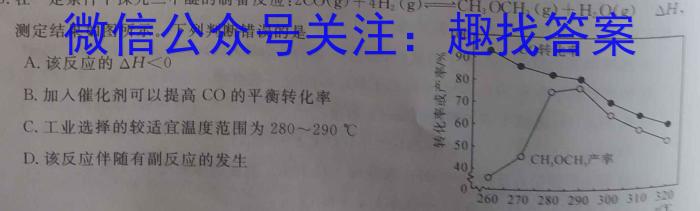 在一定条件下探究二甲醚的制备反应:2CO(g)+4H₂(g)⇌CH₃OCH₃(g)+H₂O(g) ΔH,
测定结果如图所示。下列判断错误的是
微信公众号关注：趣找答案
A.该反应的ΔH<0
B.加入催化剂可以提高CO的平衡转化率
C.工业选择的较适宜温度范围为280～290 ℃
D.该反应伴随有副反应的发生
转化率或产率/%
90
80
70
60
50
40
0
转化率
CH₃OCH₃产率
260 270 280 290 300 310 320